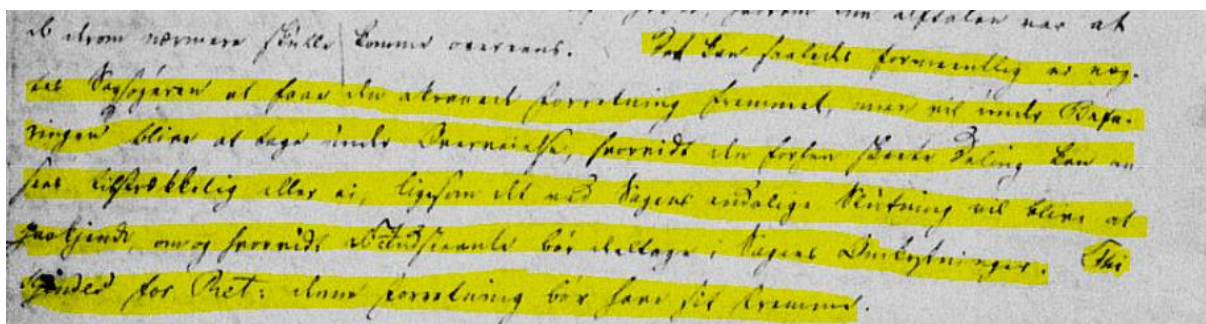 hvorom den Aftalen var at
de derom nærmere skulle komme overeens. Det kan saaledes formeentlig ei næg-
tes Sagsøgeren at faae den attraaede Forretning fremmet, men vil under Befa-
ringen blive at tage under Overveielse, hvorvidt den forhen skeete Deling kan an
sees tilstrækkelig eller ei, ligesom det ved Sagens endelige Slutning vil blive at
paakjende, om og hvorvidt bør deeltage i Sagens Omkostninger. Thi
kjendes for Ret: denne Forretning bør have sit Fremme.